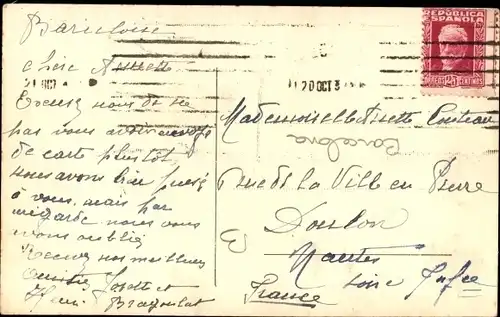 Barcelone
Chère Annette
Excusez nous de ne
pas vous avoir envoyé
de carte plus tôt
nous avons bien pensé
à vous, mais par
mégarde nous vous
avons oublié
Recevez nos meilleures
amitiés
REPÚBLICA
ESPAÑOLA
25 CENTIMOS
20 OCT 3
21 OCT
Mademoiselle
Barcelona
Rue de la Ville en Pierre
Doulon
B
Nantes
Loire Infre
France